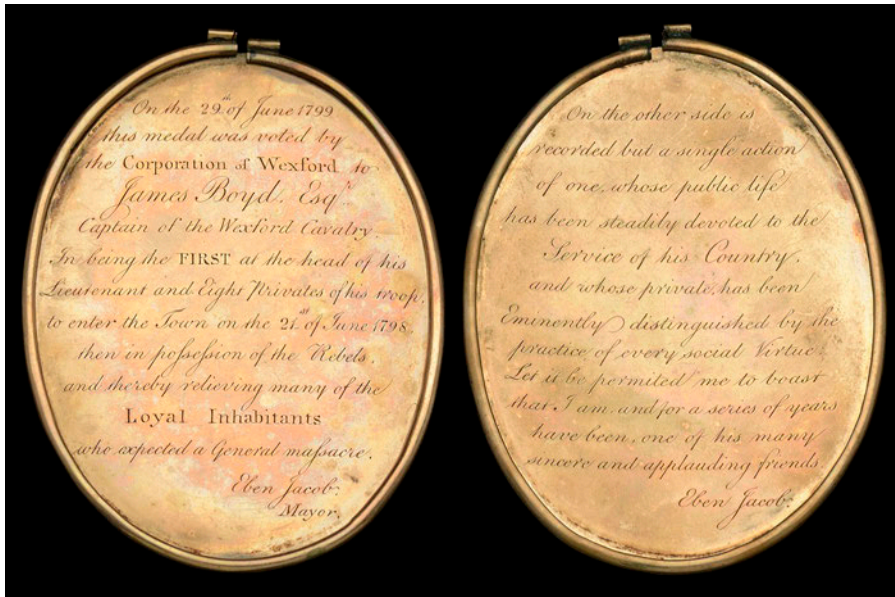 On the 29th of June 1799
this medal was voted by
the Corporation of Wexford to
James Boyd. Esqr.
Captain of the Wexford Cavalry
In being the FIRST at the head of his
Lieutenant and Eight Privates of his troop,
to enter the Town on the 21st of June 1798.
then in poſseſsion of the Rebels.
and thereby relieving many of the
Loyal Inhabitants
who expected a General maſsacre.
Eben Jacob:
Mayor.
On the other side is
recorded but a single action
of one, whose public life
has been steadily devoted to the
Service of his Country.
and whose private, has been
Eminently distinguished by the
practice of every social Virtue:
Let it be permited me to boast
that I am, and for a series of years
have been, one of his many
sincere and applauding friends.
Eben Jacob: